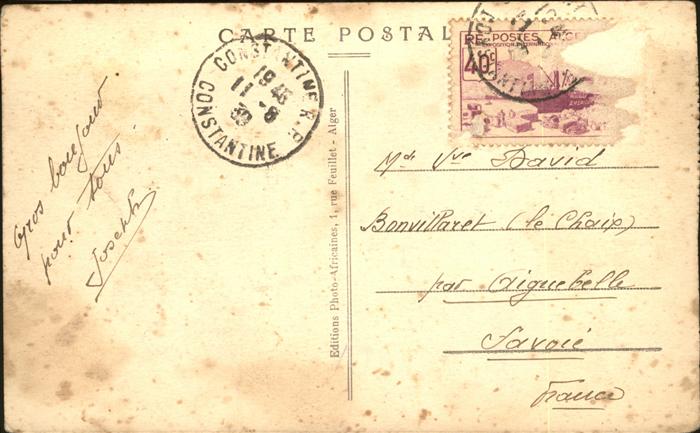 CARTE POSTAL
CONSTANTINE R.P.
1945
11-8
39
CONSTANTINE
RF POSTES ALGE
40c
Gros bonjour
pour tous
Joseph
Editions Photo-Africaines, 1, rue Feuillet - Alger
Md Vve David
Bonvillaret (le Chaix)
par Aiguebelle
Savoie
France